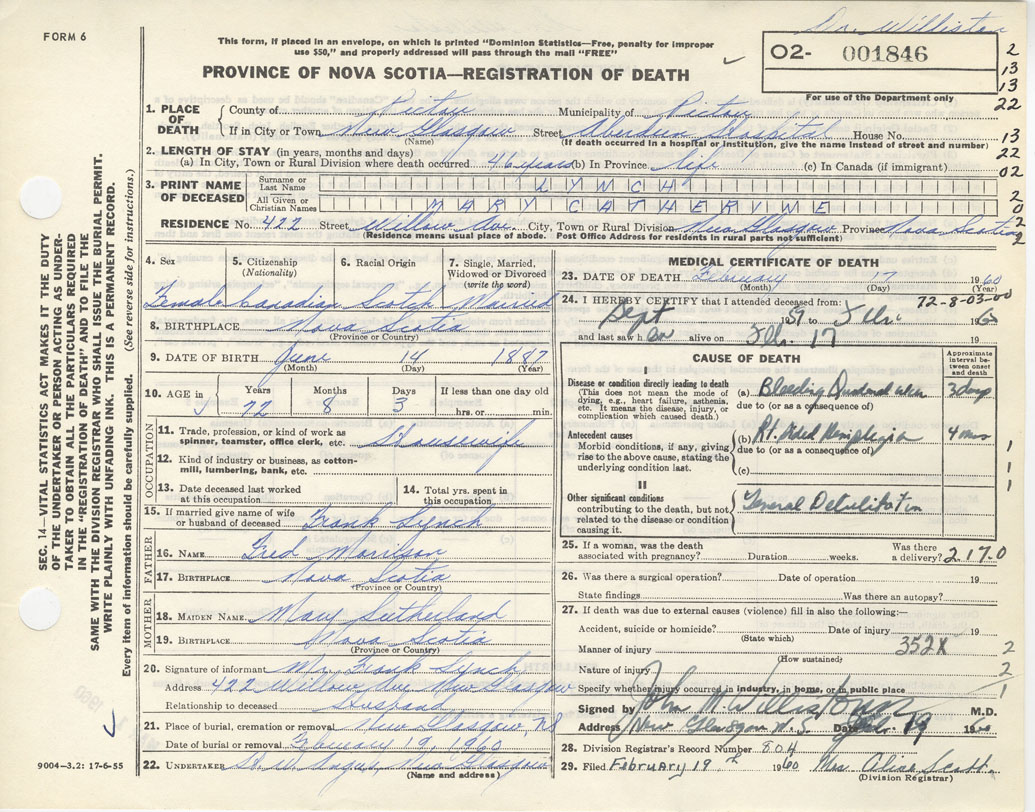 FORM 6
This form, if placed in an envelope, on which is printed "Dominion Statistics—Free, penalty for improper
use $50," and properly addressed will pass through the mail "FREE"
PROVINCE OF NOVA SCOTIA—REGISTRATION OF DEATH
Dr. Williston
O2- 001846
For use of the Department only
2
13
13
22
13
22
02
2
0
2
2
1. PLACE OF DEATH
County of Pictou Municipality of Pictou
If in City or Town New Glasgow Street Aberdeen Hospital House No.
(Name) (If death occurred in a hospital or institution, give the name instead of street and number)
2. LENGTH OF STAY (in years, months and days)
(a) In City, Town or Rural Division where death occurred 46 years (b) In Province life (c) In Canada (if immigrant)
3. PRINT NAME OF DECEASED
Surname or Last Name LYNCH
All Given or Christian Names MARY CATHERINE
RESIDENCE No. 422 Street Willow Ave. City, Town or Rural Division New Glasgow Province Nova Scotia
(Residence means usual place of abode. Post Office Address for residents in rural parts not sufficient)
4. Sex Female
5. Citizenship (Nationality) Canadian
6. Racial Origin Scotch
7. Single, Married, Widowed or Divorced (write the word) Married
8. BIRTHPLACE Nova Scotia
(Province or Country)
9. DATE OF BIRTH June 14 1887
(Month) (Day) (Year)
10. AGE in Years 72 Months 8 Days 3 If less than one day old hrs. or min.
OCCUPATION
11. Trade, profession, or kind of work as spinner, teamster, office clerk, etc. Housewife
12. Kind of industry or business, as cotton-mill, lumbering, bank, etc.
13. Date deceased last worked at this occupation
14. Total yrs. spent in this occupation
15. If married give name of wife or husband of deceased Frank Lynch
FATHER
16. NAME Fred Morrison
17. BIRTHPLACE Nova Scotia
(Province or Country)
MOTHER
18. MAIDEN NAME Mary Sutherland
19. BIRTHPLACE Nova Scotia
(Province or Country)
20. Signature of informant Mr. Frank Lynch
Address 422 Willow Ave New Glasgow
Relationship to deceased Husband
21. Place of burial, cremation or removal New Glasgow, NS
Date of burial or removal February 19, 1960
22. UNDERTAKER New Glasgow
(Name and address)
MEDICAL CERTIFICATE OF DEATH
23. DATE OF DEATH February 17 1960
(Month) (Day)
24. I HEREBY CERTIFY that I attended deceased from: 72-8-03-00
Sept 1959 to Feb. 1960
and last saw h er alive on Feb. 17 19
CAUSE OF DEATH
Approximate interval between onset and death
I
Disease or condition directly leading to death
(This does not mean the mode of dying, e.g., heart failure, asthenia, etc. It means the disease, injury, or complication which caused death.)
(a) Bleeding Duodenal ulcer 3 days
due to (or as a consequence of)
Antecedent causes
Morbid conditions, if any, giving rise to the above cause, stating the underlying condition last.
(b) Rt. sided Hemiplegia 4 mos
due to (or as a consequence of)
(c)
1
1
1
II
Other significant conditions contributing to the death, but not related to the disease or condition causing it.
General Debilitation
25. If a woman, was the death associated with pregnancy? Duration weeks. Was there a delivery? 2.17.0
26. Was there a surgical operation? Date of operation 19
State findings Was there an autopsy?
27. If death was due to external causes (violence) fill in also the following:—
Accident, suicide or homicide? Date of injury 19
(State which)
Manner of injury 352X 2
(How sustained)
Nature of injury 2
Specify whether injury occurred in industry, in home, or in public place 1
Signed by John M. Williston M.D.
Address New Glasgow N.S. Date Feb. 19 1960
28. Division Registrar's Record Number 804
29. Filed February 19th 1960 Mrs Alice Scott
(Division Registrar)
SEC. 14—VITAL STATISTICS ACT MAKES IT THE DUTY
OF THE UNDERTAKER OR PERSON ACTING AS UNDER-
TAKER TO OBTAIN ALL THE PARTICULARS REQUIRED
IN THE "REGISTRATION OF DEATH" AND TO FILE THE
SAME WITH THE DIVISION REGISTRAR WHO SHALL ISSUE THE BURIAL PERMIT.
WRITE PLAINLY WITH UNFADING INK. THIS IS A PERMANENT RECORD.
Every item of information should be carefully supplied. (See reverse side for instructions.)
9004—3.2: 17-6-55